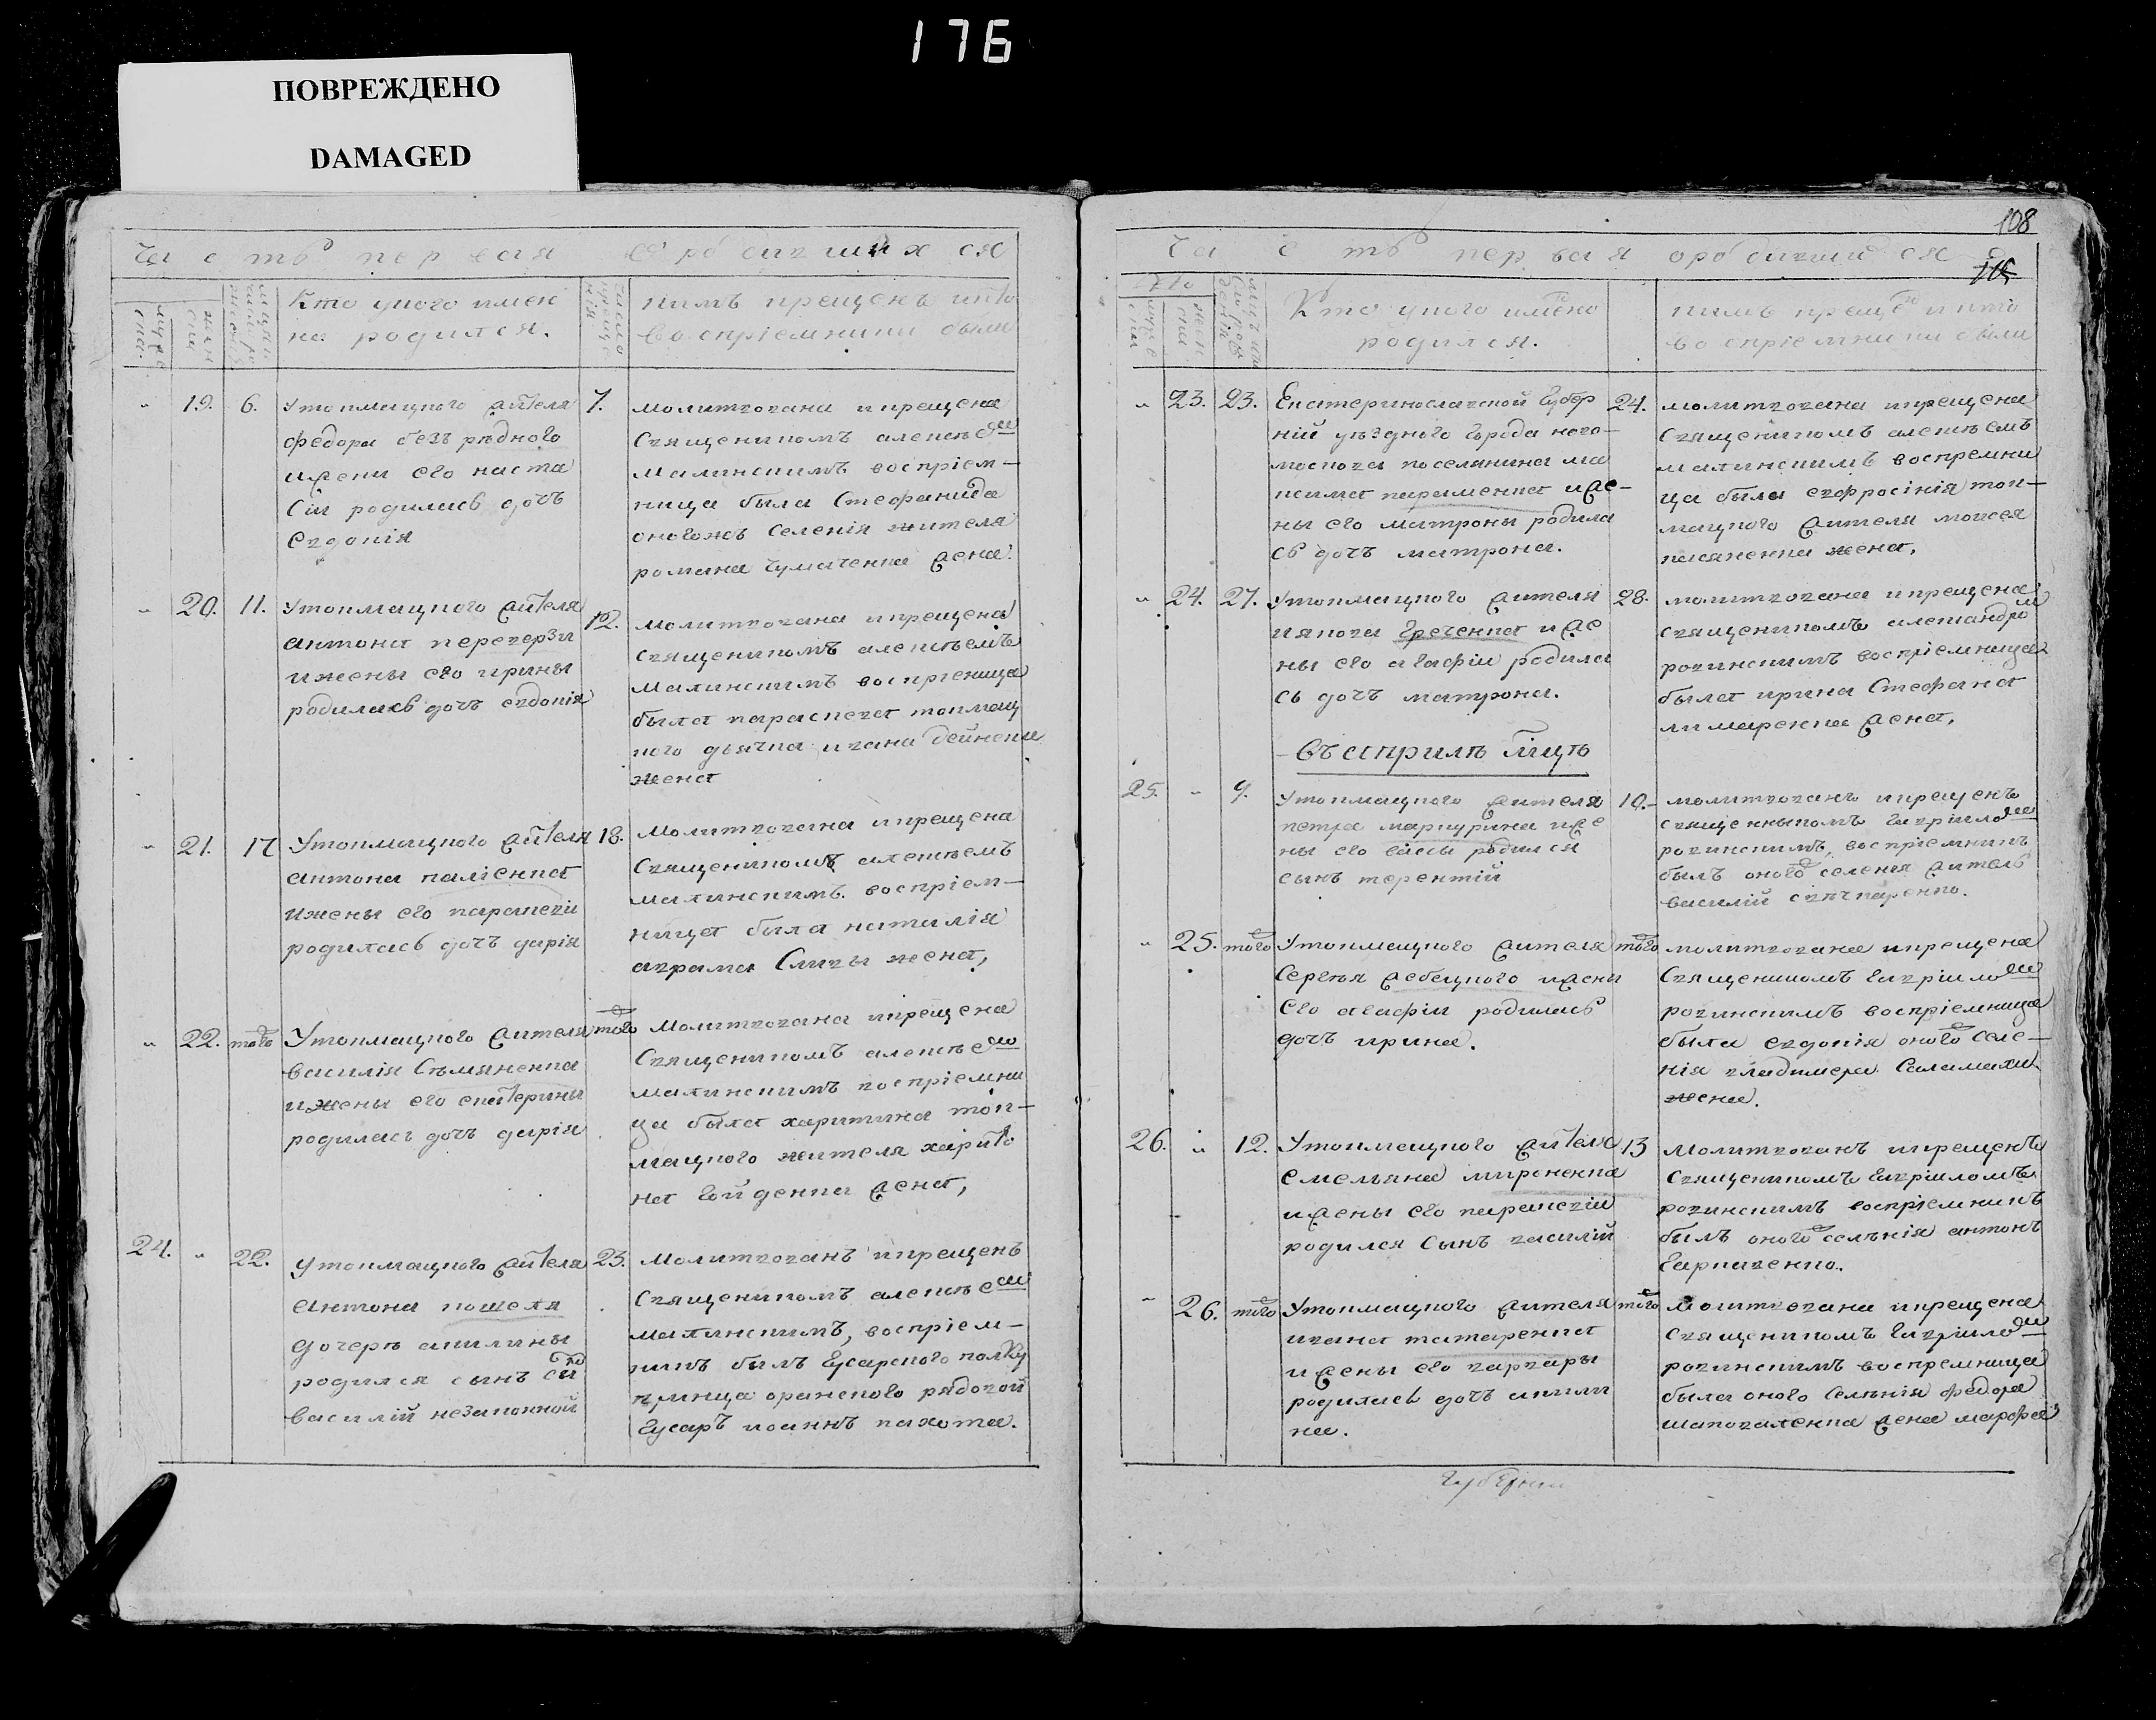 176
ПОВРЕЖДЕНО
DAMAGED
Часть первая о родившихся
Кто у кого имен
на родился.
кимъ крещенъ икто
воспріемники были
19. 6. Утокмацкого жителя 7.
федора безъ
ижени его наста
сіи родилась дочъ
евдокія
молитвована икрещена
священикомъ алексѣем
малинскимъ воспріем-
ница была Стефанида
оногожъ селенія жителя
романа Чумаченка жена.
20. 11. Утокмацкого жителя 12.
антона переверзи
ижены его ирины
родиласъ дочъ евдокія
молитвована икрещена
священикомъ алексѣемъ
малинскимъ воспріемница
была параскева токмац
кого дьячка ивана дейнеки
жена
21. 17 Утокмацкого жителя 18.
антона паліенка
ижены его параскевіи
родилась дочъ дарія
Молитвована икрещена
священикомъ алексѣемъ
малинскимъ. воспріем-
ница была наталія
аврама Сливы жена,
22. того Утокмацкого жителя того
василія Сѣмяненка
ижены его екатерины
родилась дочъ дарія
Молитвована икрещена
Священикомъ алексѣем
малинскимъ воспріемни
ца была харитина ток-
мацкого жителя харито
на Гайденка жена,
24. 22. Утокмацкого жителя 23.
антона кошеля
дочерѣ акилины
родился сынъ
василій незаконной
Молитвованъ икрещенъ
Священикомъ алексѣем
малинскимъ, воспріем-
никъ былъ Гусарского полку
принца оранского рядовой
Гусаръ иоаннъ пахота.
108
Часть первая ородившихся
Кто укого имено
родился.
кимъ креще икто
воспріемники были
23. 23. Екатеринославской Губер 24.
ній уѣздного города ново-
москова поселянина ма
ксима карименка иже-
ны его матроны родила
сь дочъ матрона.
молитвована икрещена
священикомъ алексѣемъ
малинскимъ воспремни
ца была евфросінія ток-
мацкого жителя моисея
касяненка жена,
24. 27. Утокмацкого жителя 28.
иякова Гречепка иже
ны его агафіи родила
сь дочъ матрона.
молитвована икрещена
священикомъ александром
ровинскимъ воспріемница
была ирина Стефана
лимаренка жена,
-Въ априлѣ мцѣ
25. 9. Утокмацкого жителя 10.-
петра марцурина иже
ны его васы родился
сынъ терентій
молитвованъ икрещенъ
священныкомъ Гавріилом
ровинскимъ, воспріемникъ
былъ оного селенія житель
василій слѣпаренко.
25. того Утокмацкого жителя того
Сергѣя жебецкого ижены
Его агафіи родилась
дочъ ирина.
молитвована икрещена
Священикомъ Гавріилом
ровинскимъ воспріемница
была евдокія оного селе-
нія владимера Саламахи
жена.
26. 12. Утокмацкого жителя 13
емельяна мироненка
ижены его параскевіи
родился сынъ василій
Молитвованъ икрещенъ
Священикомъ Гавріиломъ
ровинскимъ воспріемникъ
былъ оного селѣнія антонъ
Гаркавенко.
26. того Утокмацкого жителя того
ивана татаренка
ижены его варвары
родилась дочъ акили
на.
Молитвована икрещена
Священикомъ Гавріилом
ровинскимъ воспремница
была оного Селѣнія федора
шаповаленка жена марфа
Губернии